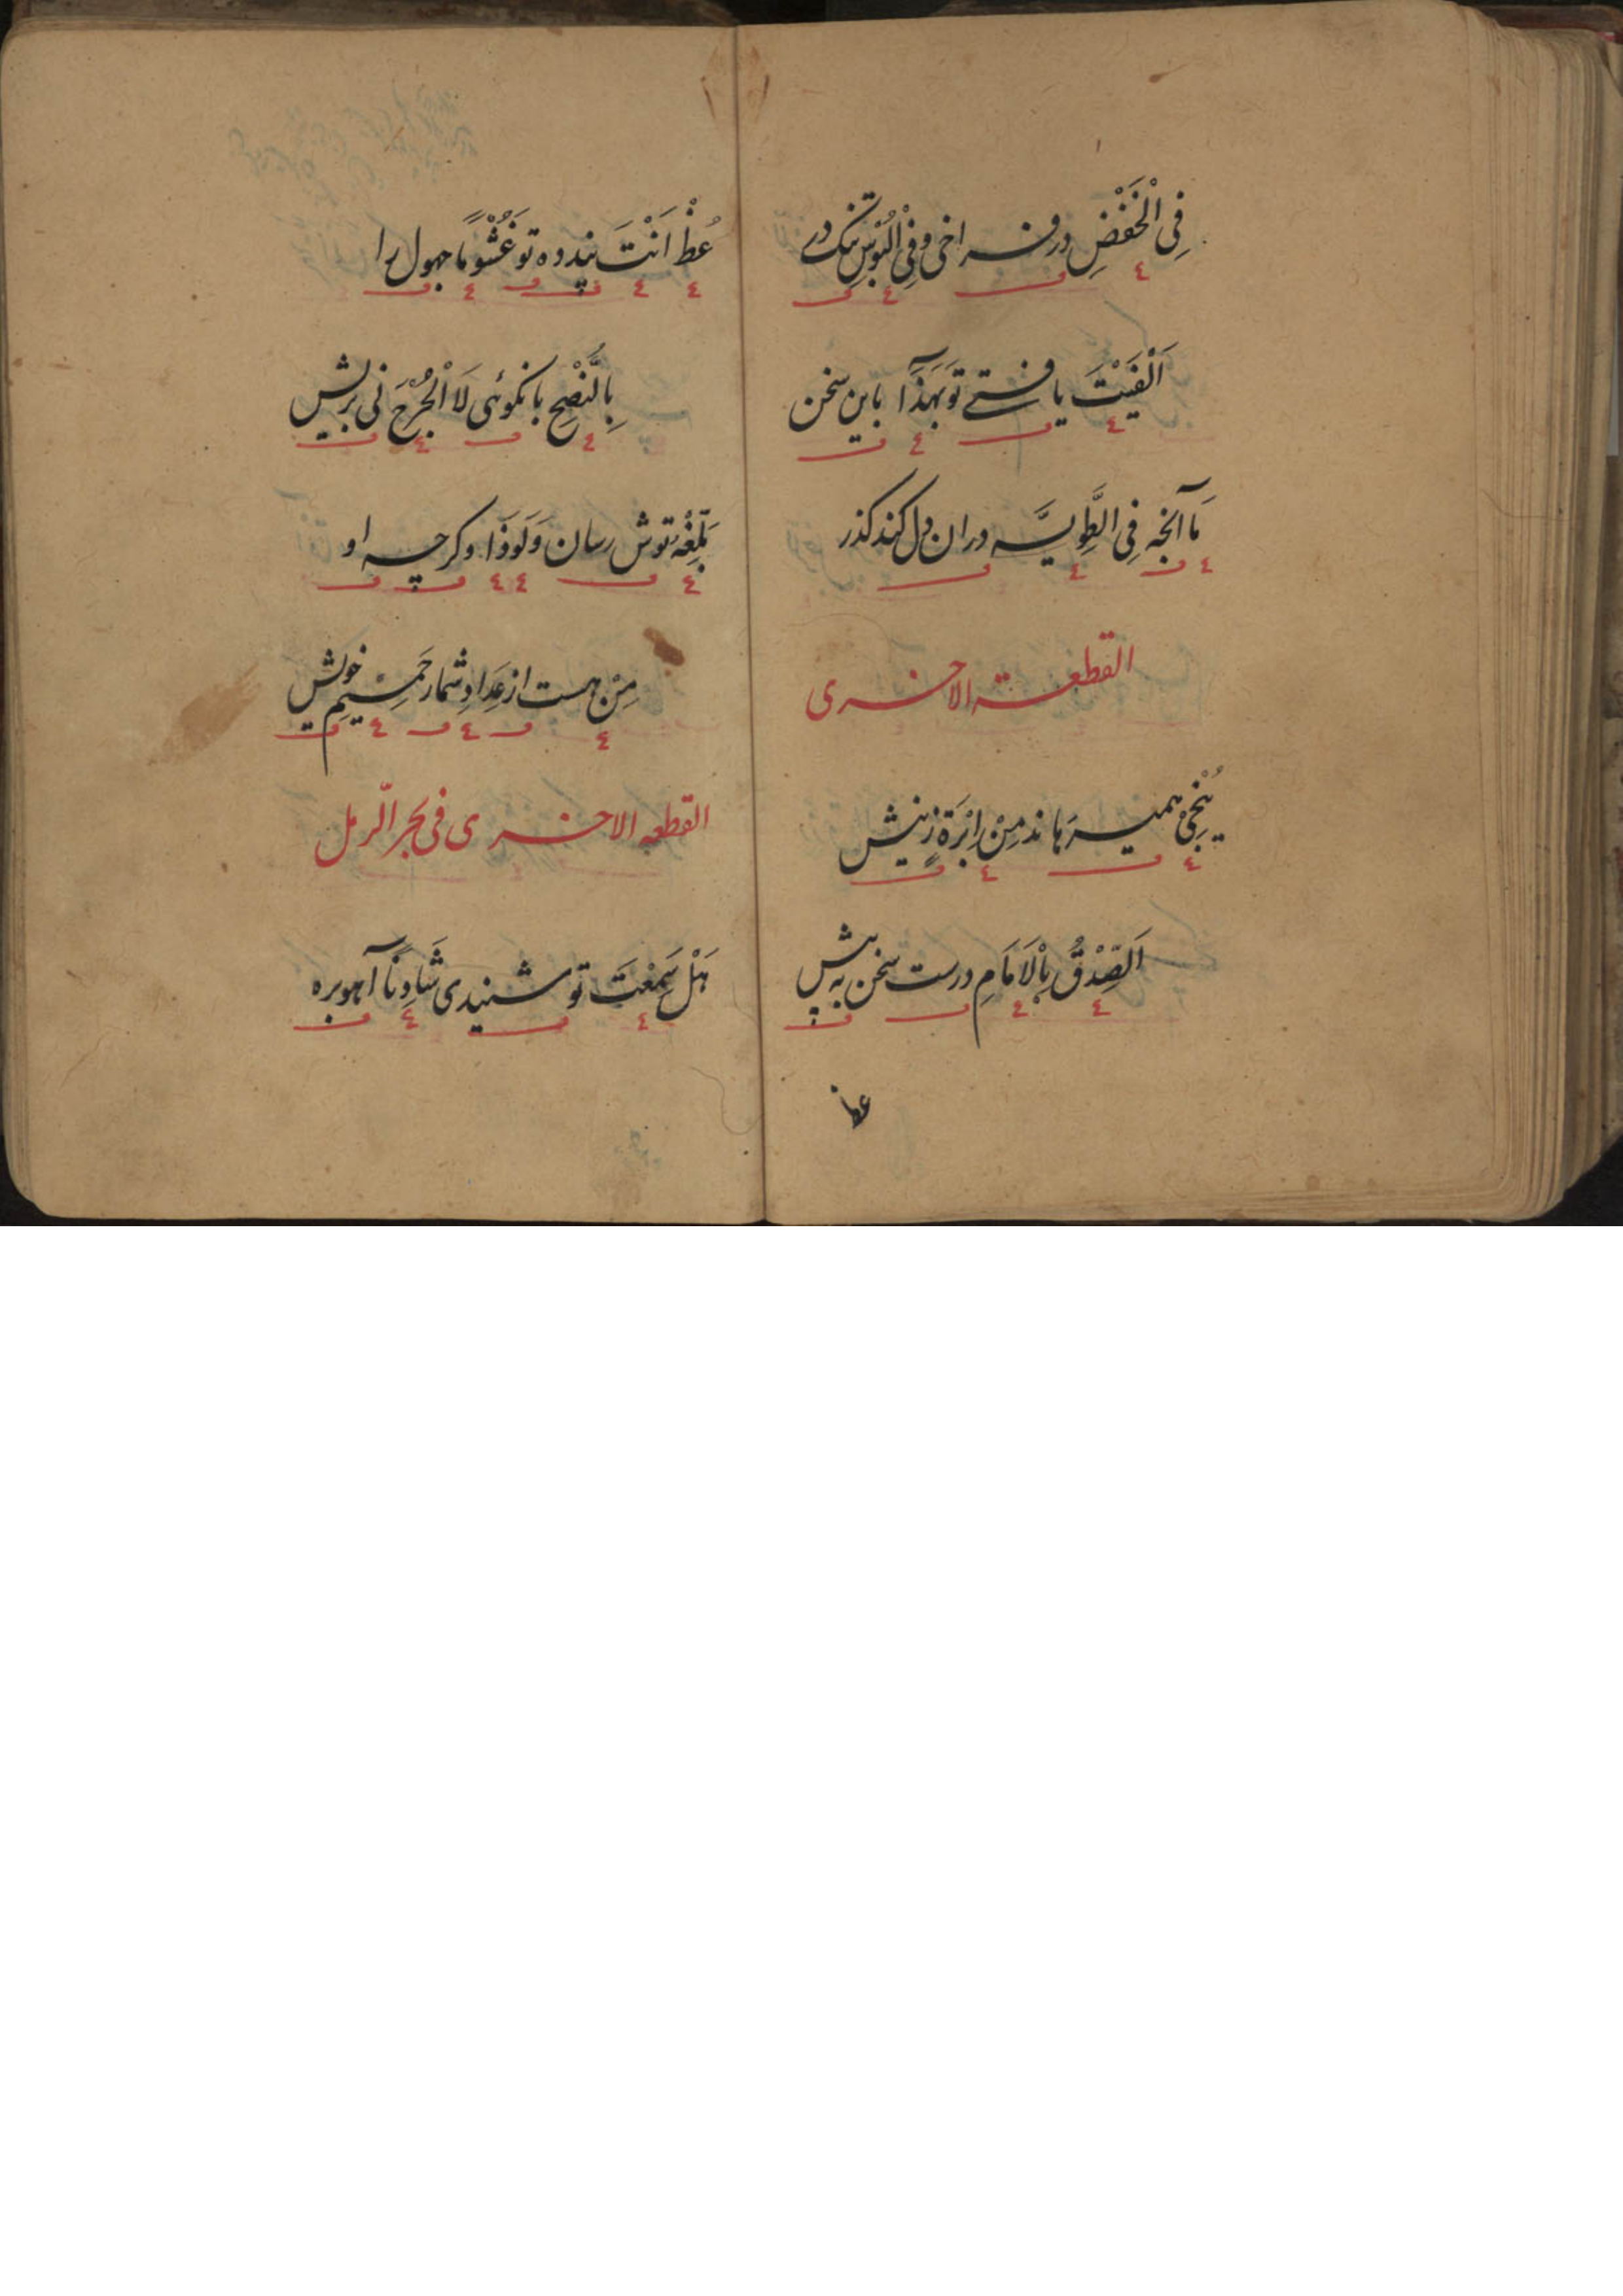 فِی الْخَفْضِ در فراخی و فِی الْبُوْسِ تنک در
اَلْفَیْتَ یافتے تو بَهَذَا باین سخن
مَا آنچه فِی الطَّوِیَّه در ان دل کند کذر
القطعة الاخری
یُنْجِیْ همیرهاند مِنْ اِبْرَةٍ زنیش
اَلصِّدْقُ بِالْاَمَامِ درست سخن به پیش
عظ
عُظْ اَنْتَ پند ده تو غَشُوْمًا جهول را
بِالنُّصْحِ بانکوئی لَا الْجُرْحَ نی بریش
بَلِّغْهُ توش رسان وَلَوْ ذَا وکرچه او
مِنْ هست از عَِدَادِ شمار حَمِیْمِ خویش
القطعه الاخری فی بحر الرّمل
هَلْ سَمِعْتَ تو شنیدی شَادِنًا آهو بره